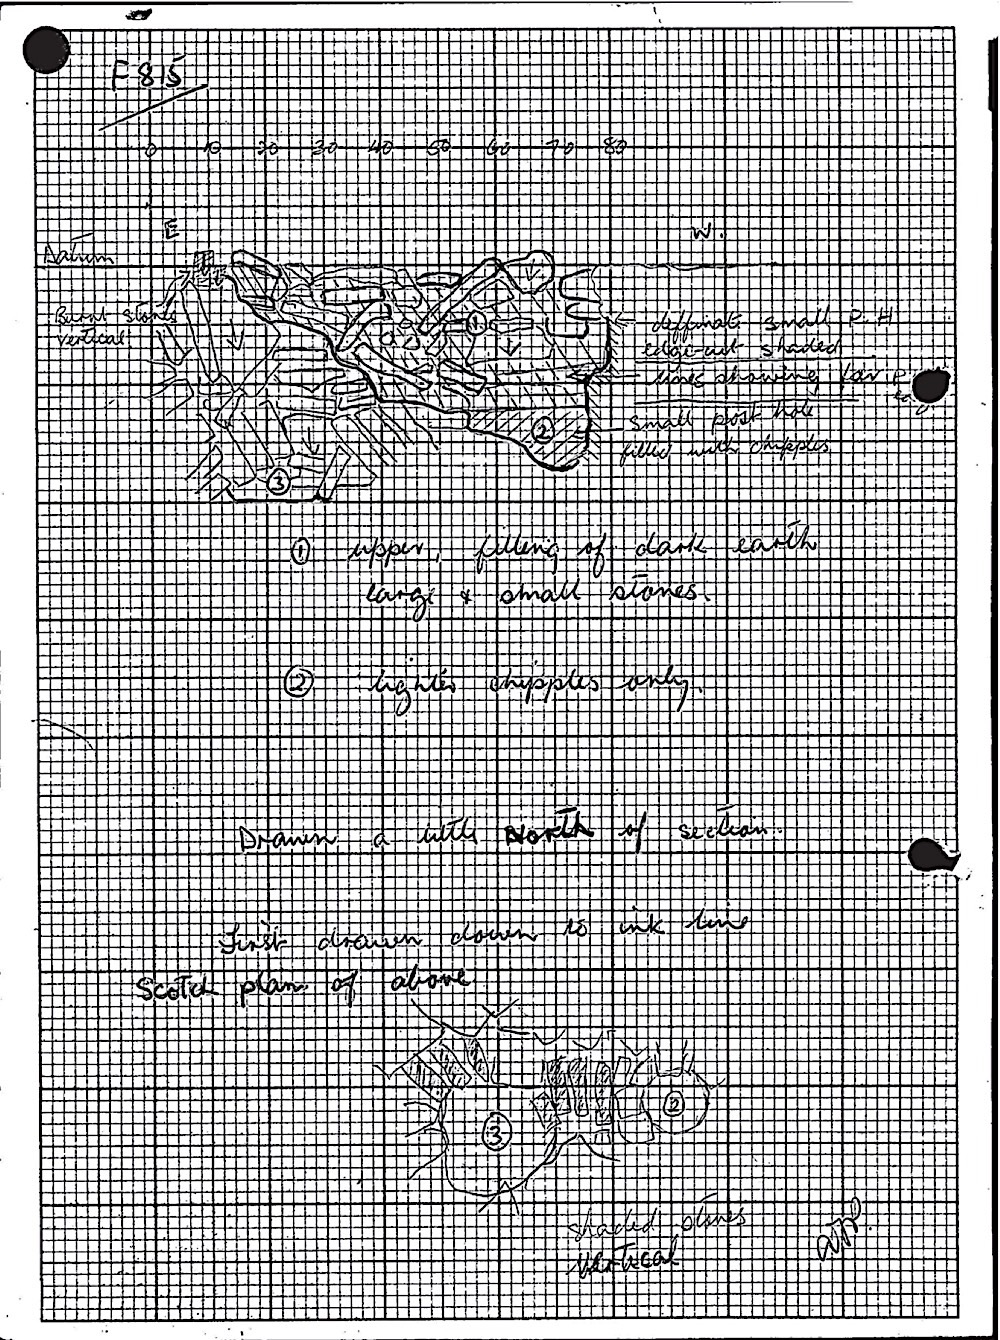 F 815
0 10 20 30 40 50 60 70 80
E W.
Datum
Burnt stones
vertical
deffinate small P.H
edge-cut shaded
lines showing far P
small post hole
filled with chipples
1
2
3
① upper, filling of dark earth
large & small stones.
② lighter chipples only.
Drawn a little North of section.
First drawn down to ink line
Scotch plan of above
3
2
shaded stones
vertical